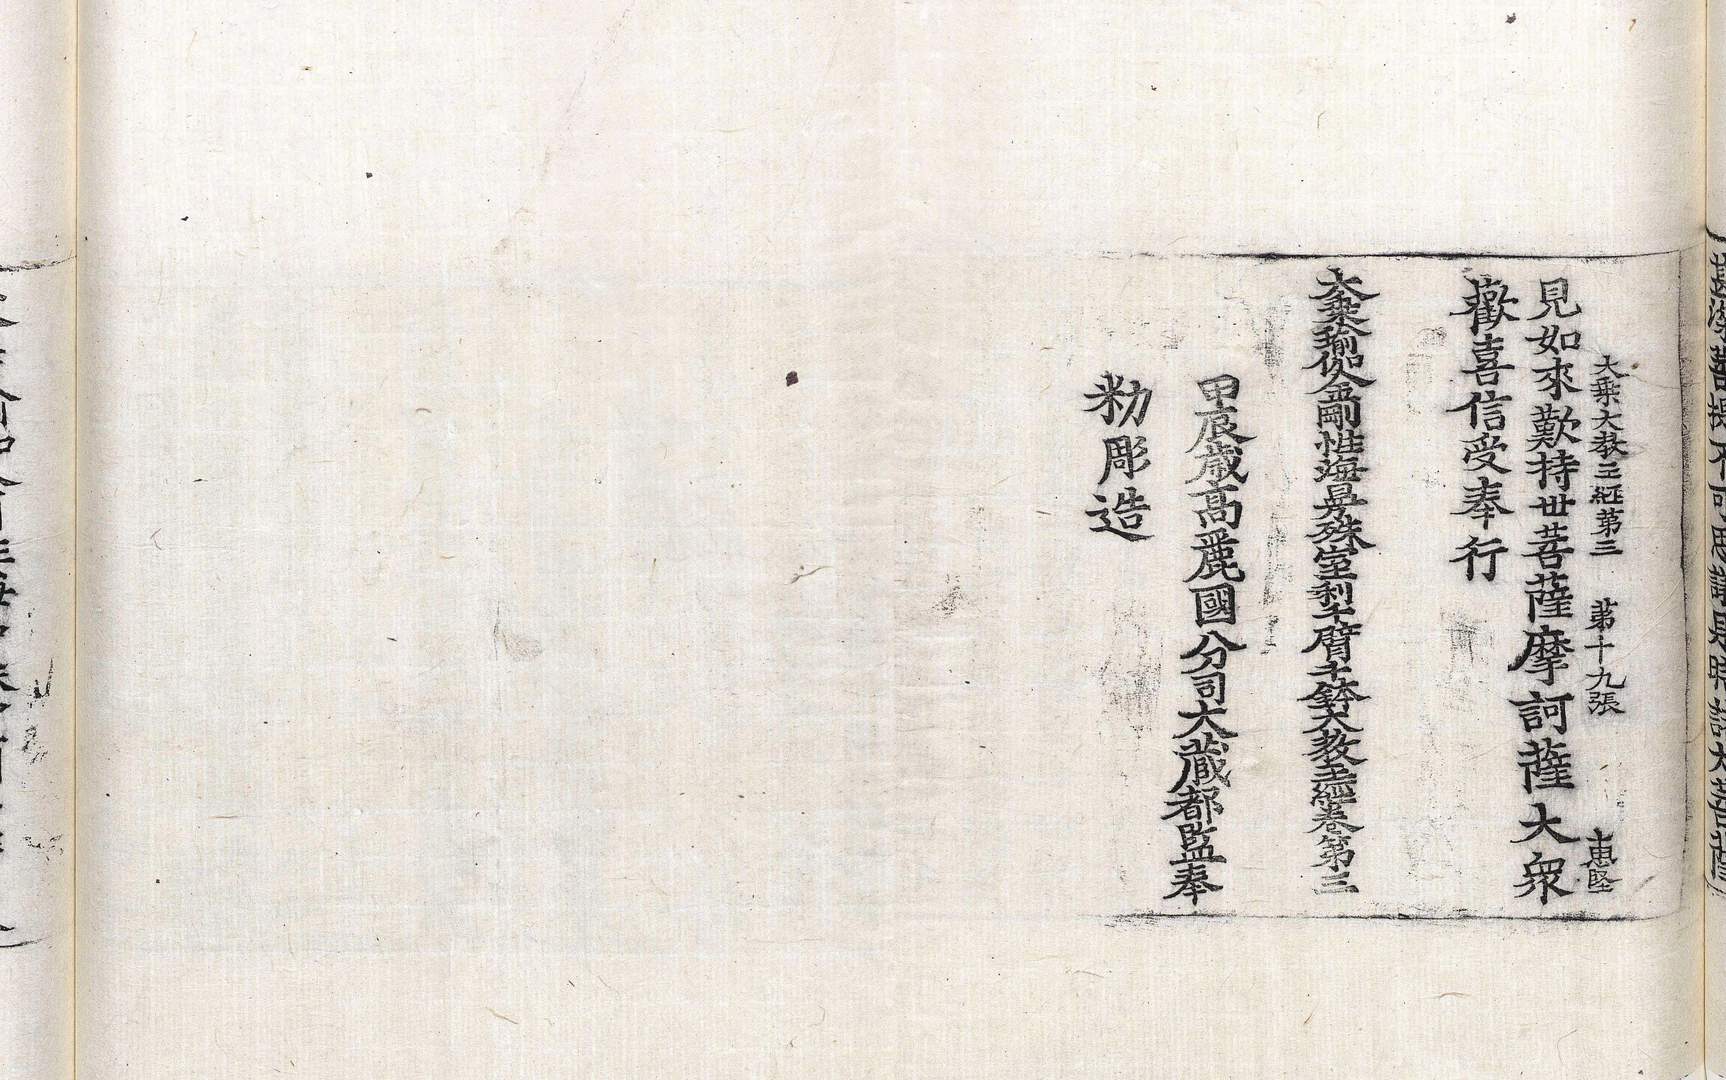 菩提不可思議是時諸大菩薩
大乘大教王経第三 第十九張 惠堅
見如來歎持世菩薩摩訶薩大衆
歡喜信受奉行
大乘瑜伽金剛性海曼殊室利千臂千鉢大教王經卷第三
甲辰歲高麗國分司大藏都監奉
勑彫造